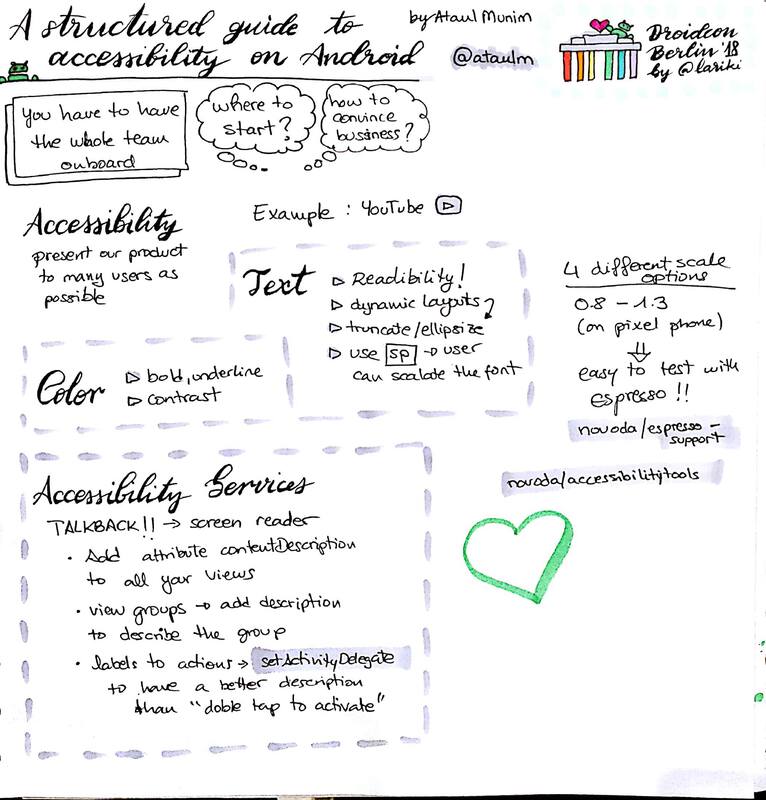 A structured guide to
accessibility on Android
by Ataul Munim
@ataulm
Droidcon
Berlin '18
by @lariki
You have to have
the whole team
onboard
where to
start?
how to
convince
business?
Accessibility
present our product
to many users as
possible
Example : YouTube
Text
▷ Readibility!
▷ dynamic layouts
▷ truncate/ellipsize
▷ use sp → user
can scalate the font
4 different scale
options
0.8 – 1.3
(on pixel phone)
⇓
easy to test with
espresso !!
novoda/espresso-
support
novoda/accessibilitytools
Color
▷ bold, underline
▷ contrast
Accessibility Services
TALKBACK!! → screen reader
• Add attribute contentDescription
to all your views
• view groups → add description
to describe the group
• labels to actions → setActivityDelegate
to have a better description
than "doble tap to activate"